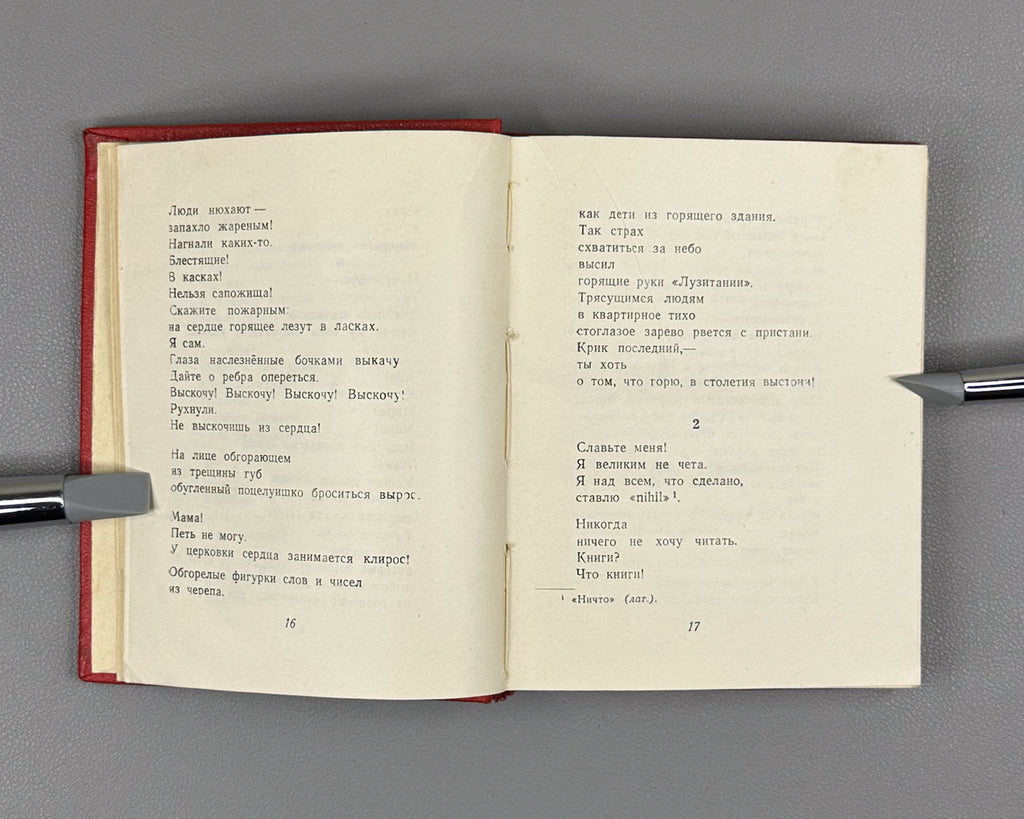 Люди нюхают —
запахло жареным!
Нагнали каких-то.
Блестящие!
В касках!
Нельзя сапожища!
Скажите пожарным:
на сердце горящее лезут в ласках.
Я сам.
Глаза наслезнённые бочками выкачу.
Дайте о ребра опереться.
Выскочу! Выскочу! Выскочу! Выскочу!
Рухнули.
Не выскочишь из сердца!
На лице обгорающем
из трещины губ
обугленный поцелуишко броситься вырос.
Мама!
Петь не могу.
У церковки сердца занимается клирос!
Обгорелые фигурки слов и чисел
из черепа,
16
как дети из горящего здания.
Так страх
схватиться за небо
высил
горящие руки «Лузитании».
Трясущимся людям
в квартирное тихо
стоглазое зарево рвется с пристани.
Крик последний,—
ты хоть
о том, что горю, в столетия выстони!
2
Славьте меня!
Я великим не чета.
Я над всем, что сделано,
ставлю «nihil» ¹.
Никогда
ничего не хочу читать.
Книги?
Что книги!
¹ «Ничто» (лат.).
17